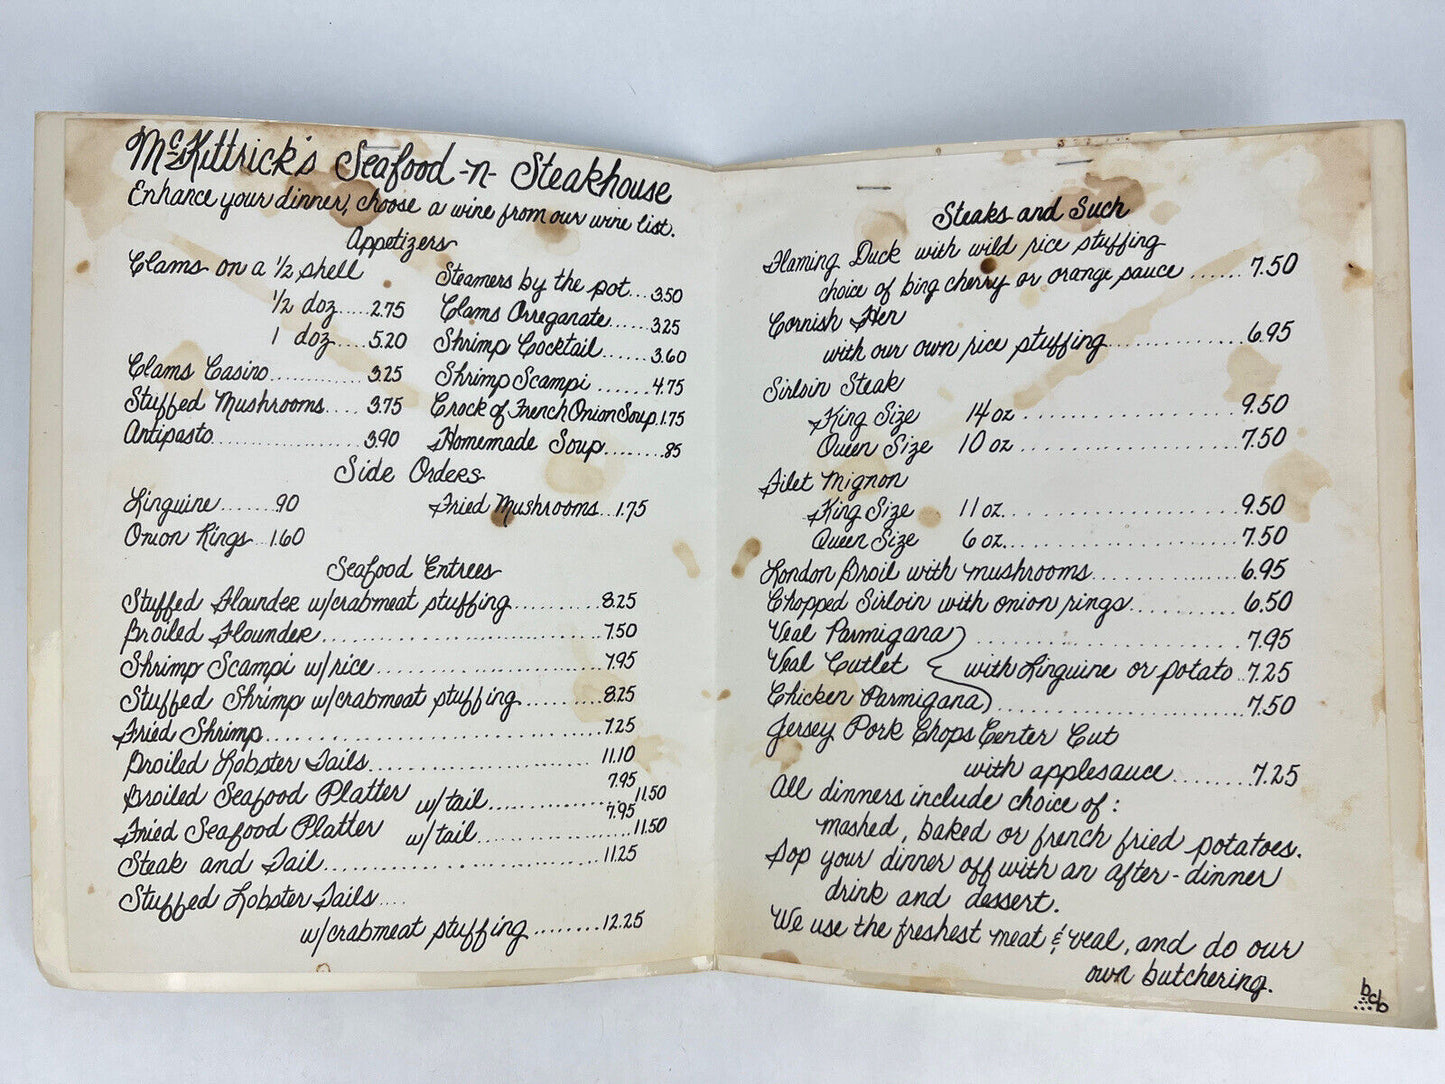 McKittrick's Seafood -n- Steakhouse
Enhance your dinner, choose a wine from our wine list.
Appetizers
Clams on a 1/2 shell
1/2 doz.....2.75
1 doz.....5.20
Clams Casino.............3.25
Stuffed Mushrooms....3.75
Antipasto.....................3.90
Steamers by the pot...3.50
Clams Orreganate......3.25
Shrimp Cocktail.......3.60
Shrimp Scampi......4.75
Crock of French Onion Soup.1.75
Homemade Soup........85
Side Orders
Linguine.......90
Onion Rings...1.60
Fried Mushrooms...1.75
Seafood Entrees
Stuffed Flounder w/crabmeat stuffing..........8.25
Broiled Flounder.................................7.50
Shrimp Scampi w/rice...........................7.95
Stuffed Shrimp w/crabmeat stuffing.........8.25
Fried Shrimp.......................................7.25
Broiled Lobster Tails..........................11.10
Broiled Seafood Platter 7.95
w/tail..................11.50
Fried Seafood Platter 7.95
w/tail..................11.50
Steak and Tail..................................11.25
Stuffed Lobster Tails....
w/crabmeat stuffing........12.25
Steaks and Such
Flaming Duck with wild rice stuffing
choice of bing cherry or orange sauce......7.50
Cornish Hen
with our own rice stuffing................6.95
Sirloin Steak
King Size 14 oz.........................9.50
Queen Size 10 oz.........................7.50
Filet Mignon
King Size 11 oz.........................9.50
Queen Size 6 oz.........................7.50
London Broil with mushrooms................6.95
Chopped Sirloin with onion rings...........6.50
Veal Parmigana .............................7.95
Veal Cutlet with Linguine or potato..7.25
Chicken Parmigana...........................7.50
Jersey Pork Chops Center Cut
with applesauce........7.25
All dinners include choice of:
mashed, baked or french fried potatoes.
Top your dinner off with an after-dinner
drink and dessert.
We use the freshest meat & veal, and do our
own butchering.
bcb